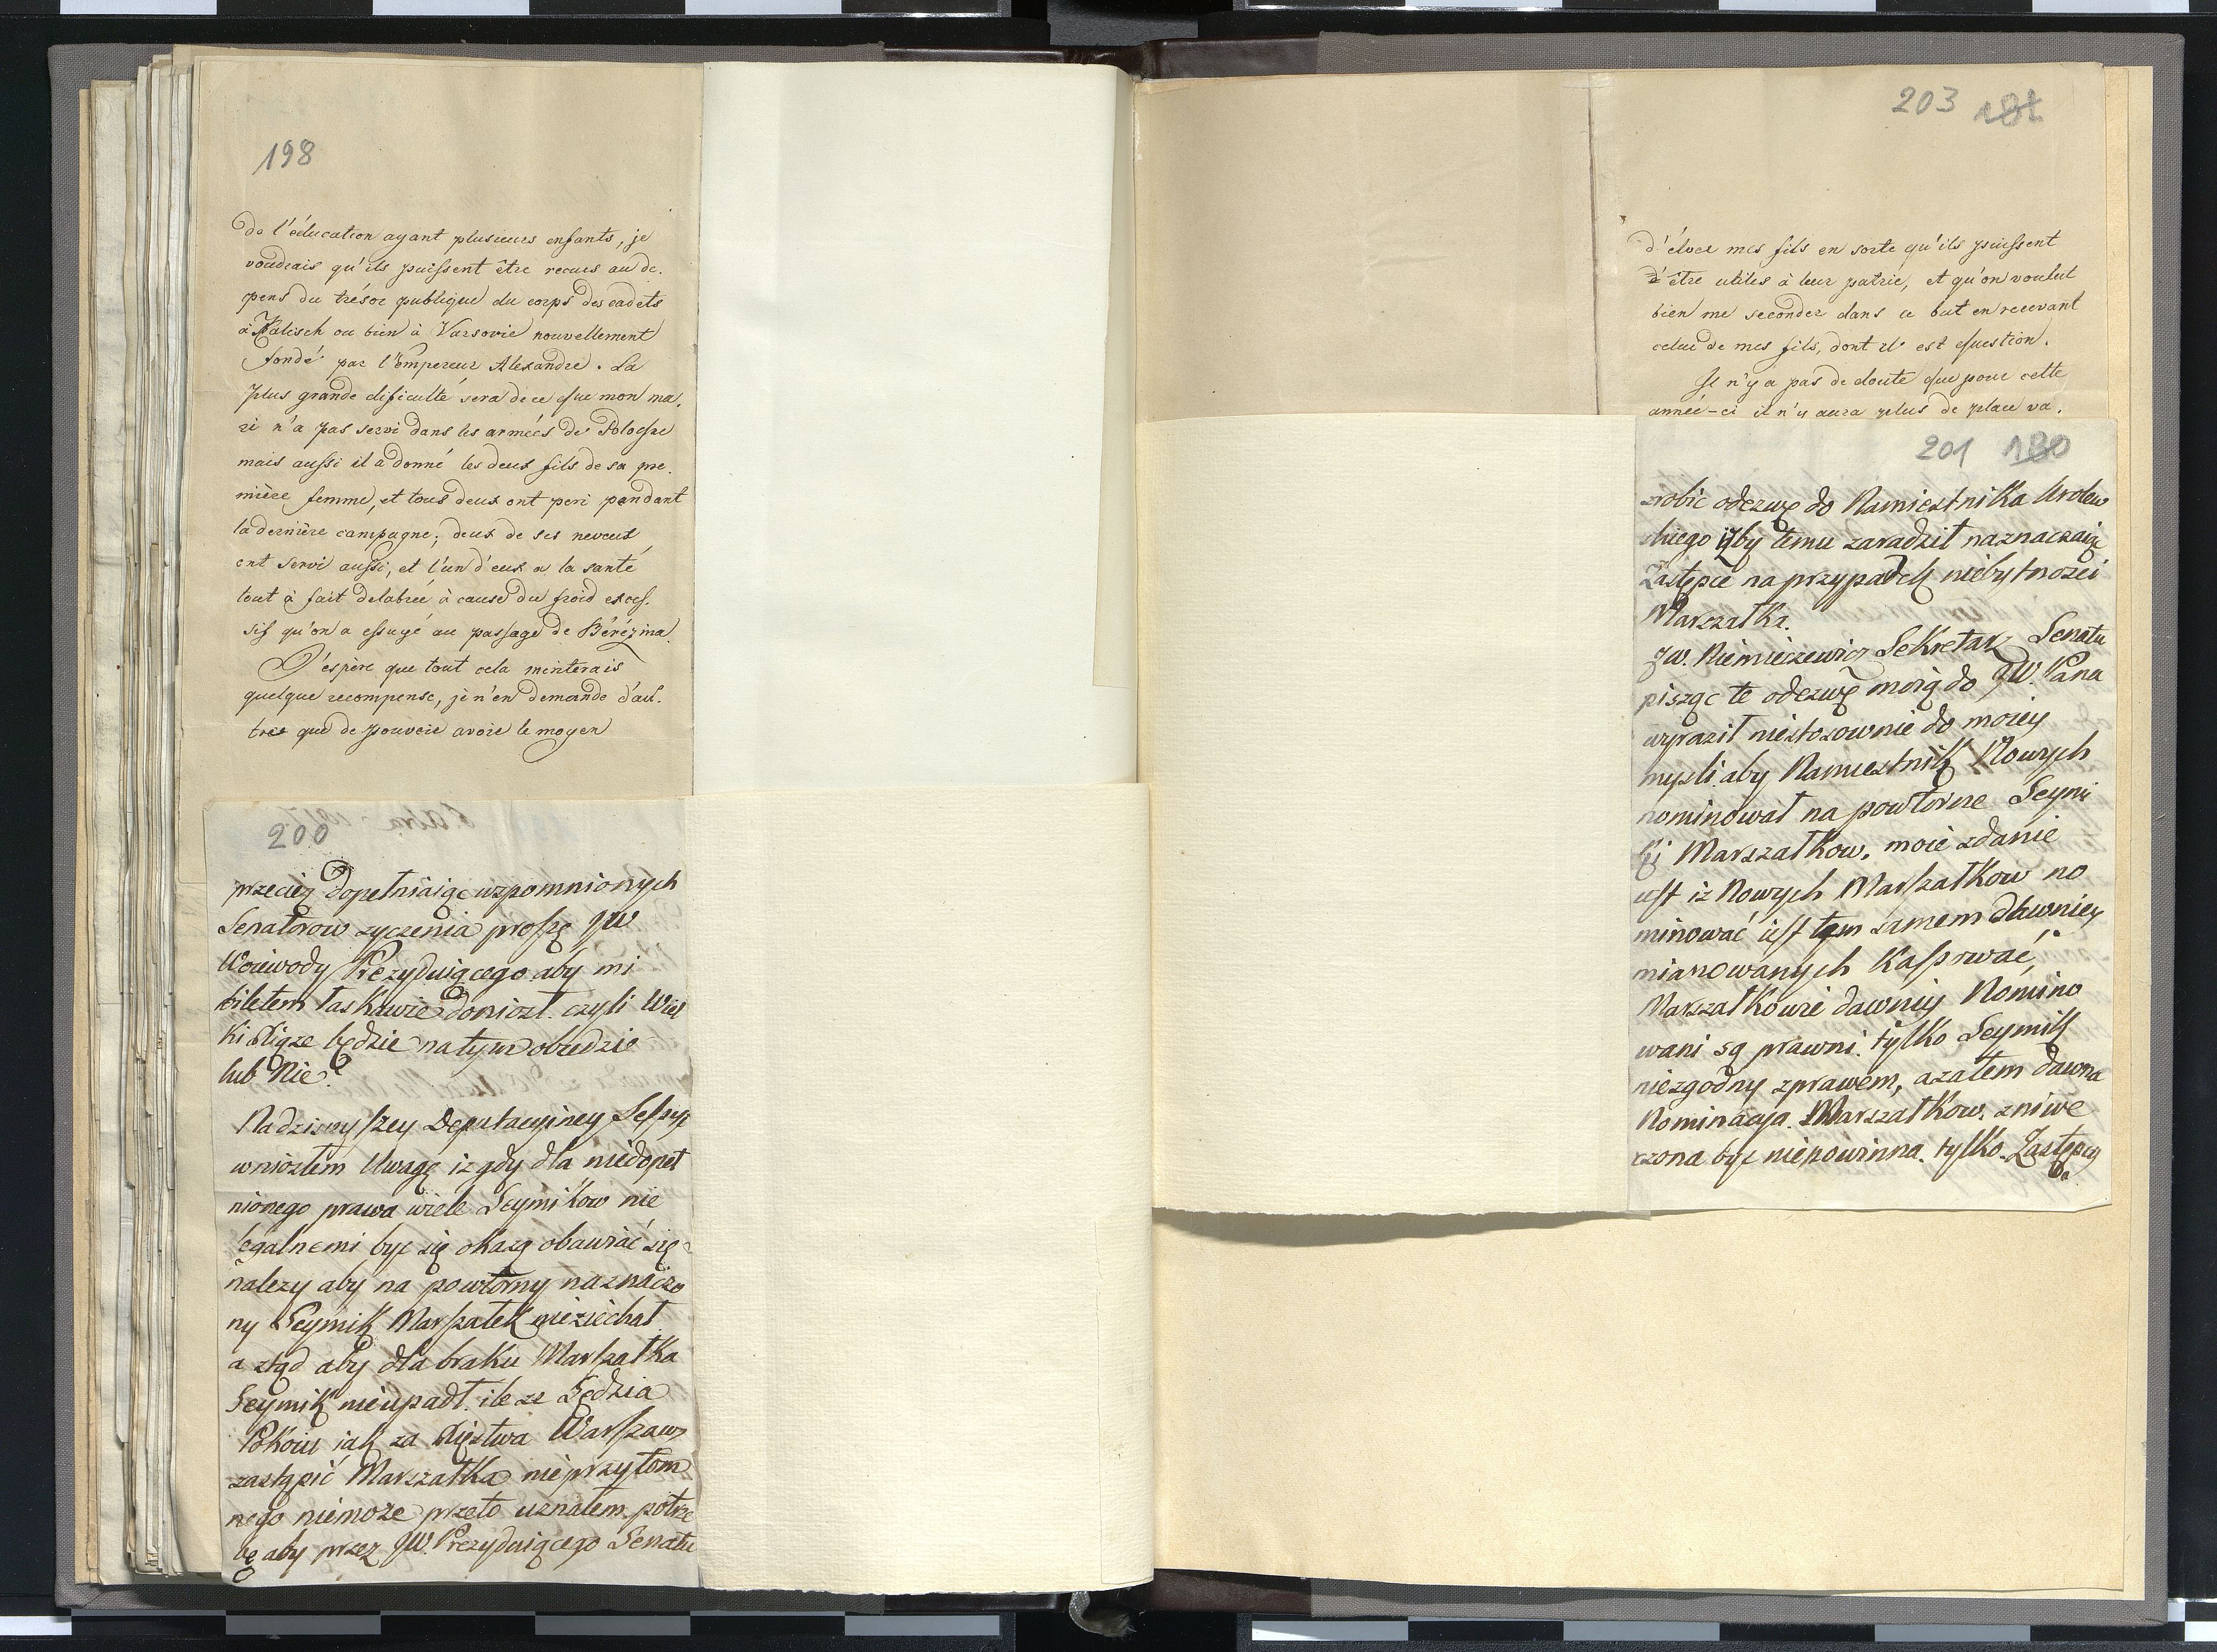 198
de l'éducation ayant plusieurs enfants, je
voudrais qu'ils puissent être recues au de.
pens du trésor publique du corps des cadets
à Kalisch ou bien à Varsovie nouvellement
fondé par l'Empereur Alexandre. La
plus grande dificulté sera de ce que mon ma.
ri n'a pas servi dans les armées de Pologne
mais aussi il a donné les deux fils de sa pre.
mière femme, et tous deux ont peri pendant
la dernière campagne; deux de ses neveux
ont servi aussi, et l'un d'eux a la santé
tout à fait delabrée à cause du froid exces.
sif qu'on a essuyé au passage de Bérézina.
J'espère que tout cela meriterais
quelque recompense, je n'en demande d'au.
tres que de pouvoir avoir le moyen
200
przeciez dopełniaiąc wspomnionych
Senatorow zyczenia proszę JW
Woiewody Prezyduiącego aby mi
biletem łaskawie doniosł. czyli Wiel
ki Xiąze będzie na tym obiedzie
lub Nie?
Na dzisieyszey Deputacyiney Sessyi
wniosłem Uwagę iz gdy dla niedopeł
nionego prawa wiele Seymikow nie
legalnemi być się okazą obawiać się
nalezy aby na powtorny naznaczo
ny Seymik Marszałek nieziechał
a ztąd aby dla braku Marszałka
Seymik nieupadł. ile ze Sędzia
Pokoiu iak za Xięztwa Warszaw
zastąpić Marszałka nieprzytom
nego niemoze przeto uznałem potrze
bę aby przez JW. Prezyduiącego Senatu
203 182
d'élver mes fils en sorte qu'ils puissent
d'être utiles à leur patrie, et qu'on voulut
bien me seconder dans ce but en recevant
celui de mes fils, dont il est question.
Il n'y a pas de doute que pour cette
année-ci il n'y aura plus de place va.
201 180
zrobić odezwę do Namiestnika Krolew
skiego iżby temu zaradził naznaczaiąc
Zastępce na przypadek niebytnosci
Marszałka.
JW. Niemcewicz Sekretarz Senatu
pisząc te odezwę moią do JW. Pana
wyraził niestosownie do moiey
mysli. aby Namiestnik Nowych
nominował na powtorne Seymi
ki Marszałkow. moie zdanie
iest iz Nowych Marszałkow no
minować iest tym samem dawniey
mianowanych Kassować,
Marszałkowie dawniey Nomino
wani są prawni. tylko Seymik
niezgodny z prawem, a zatem dawna
Nominacya Marszałkow zniwe
czona być niepowinna. tylko Zastępcy